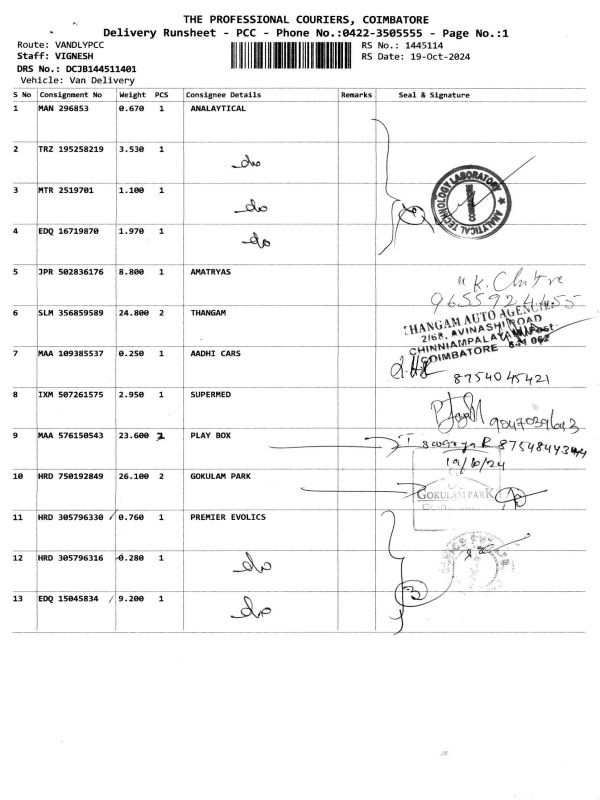 THE PROFESSIONAL COURIERS, COIMBATORE
Delivery Runsheet - PCC - Phone No.:0422-3505555 - Page No.:1
Route: VANDLYPCC RS No.: 1445114
Staff: VIGNESH RS Date: 19-Oct-2024
DRS No.: DCJB144511401
Vehicle: Van Delivery
S No Consignment No Weight PCS Consignee Details Remarks Seal & Signature
1 MAN 296853 0.670 1 ANALAYTICAL
2 TRZ 195258219 3.530 1 do
ANALYTICAL TECHNOLOGY LABORATORY
3 MTR 2519701 1.100 1 do
4 EDQ 16719870 1.970 1 do
5 JPR 502836176 8.800 1 AMATRYAS
9655924455
6 SLM 356859589 24.800 2 THANGAM
THANGAM AUTO AGENCIES
2/68, AVINASHI ROAD
CHINNIAMPALAYAM Post
COIMBATORE - 641 062
7 MAA 109385537 0.250 1 AADHI CARS
8754045421
8 IXM 507261575 2.950 1 SUPERMED
9047039643
9 MAA 576150543 23.600 PLAY BOX
19/10/24
10 HRD 750192849 26.100 2 GOKULAM PARK
GOKULAM PARK
11 HRD 305796330 0.760 1 PREMIER EVOLICS
12 HRD 305796316 0.280 1 do
13 EDQ 15045834 9.200 1 do
3